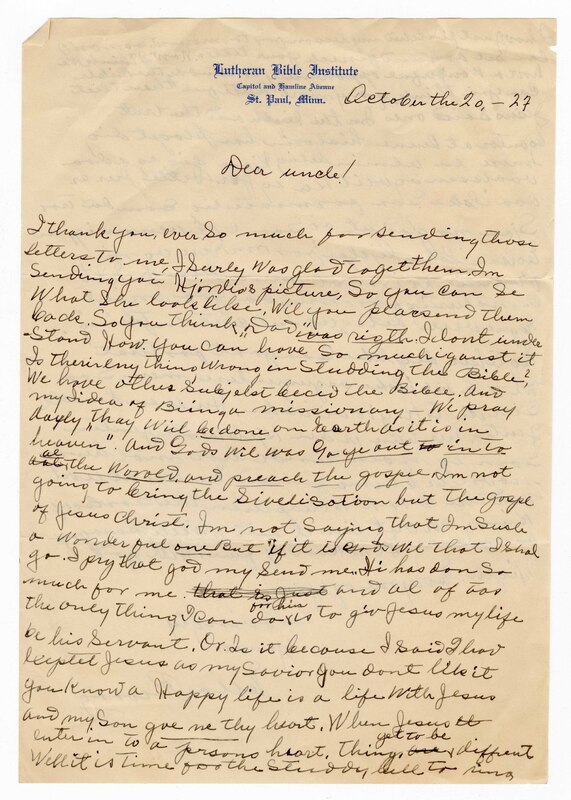 Lutheran Bible Institute
Capitol and Hamline Avenue
St. Paul, Minn.
October the 20, - 27
Dear uncle!
I thank you, ever so much for sending those
letters to me, I surley was glad to get them. Im
sending you, Hjordis's picture, so you can se
what she looks like. Wil you plac send them
back. So you think "Dad" was rigth. I dont unde
-stand how you can have so much iganst it
Is ther eny thing wrong in studding the Bible?
We have other subjekt becid the Bible. And
my idea of biing a missionary - We pray
dayly "thay will be done on earth as it is in
heaven". And Gods wil was Go ye out to in to
al the World. and preach the gospel. Im not
going to bring the Sivelisatoon but the gospel
of Jesus Christ. Im not saying that Im such
a wonderful one But "if it is Gods wil that I shal
go. I pry that god my send me. Hi has don so
much for me. that is Just and al of aas
the only thing I can do for him is to giv Jesus my life
be his servant. Or is it because I said I hav
exeptet Jesus as my Savior you dont like it
you know a Happy life is a life with Jesus
and my Son give me thy heart. When Jesus
enter in to a prsons heart. things get to be diffrent
Well it is time for the studdy bell to ring